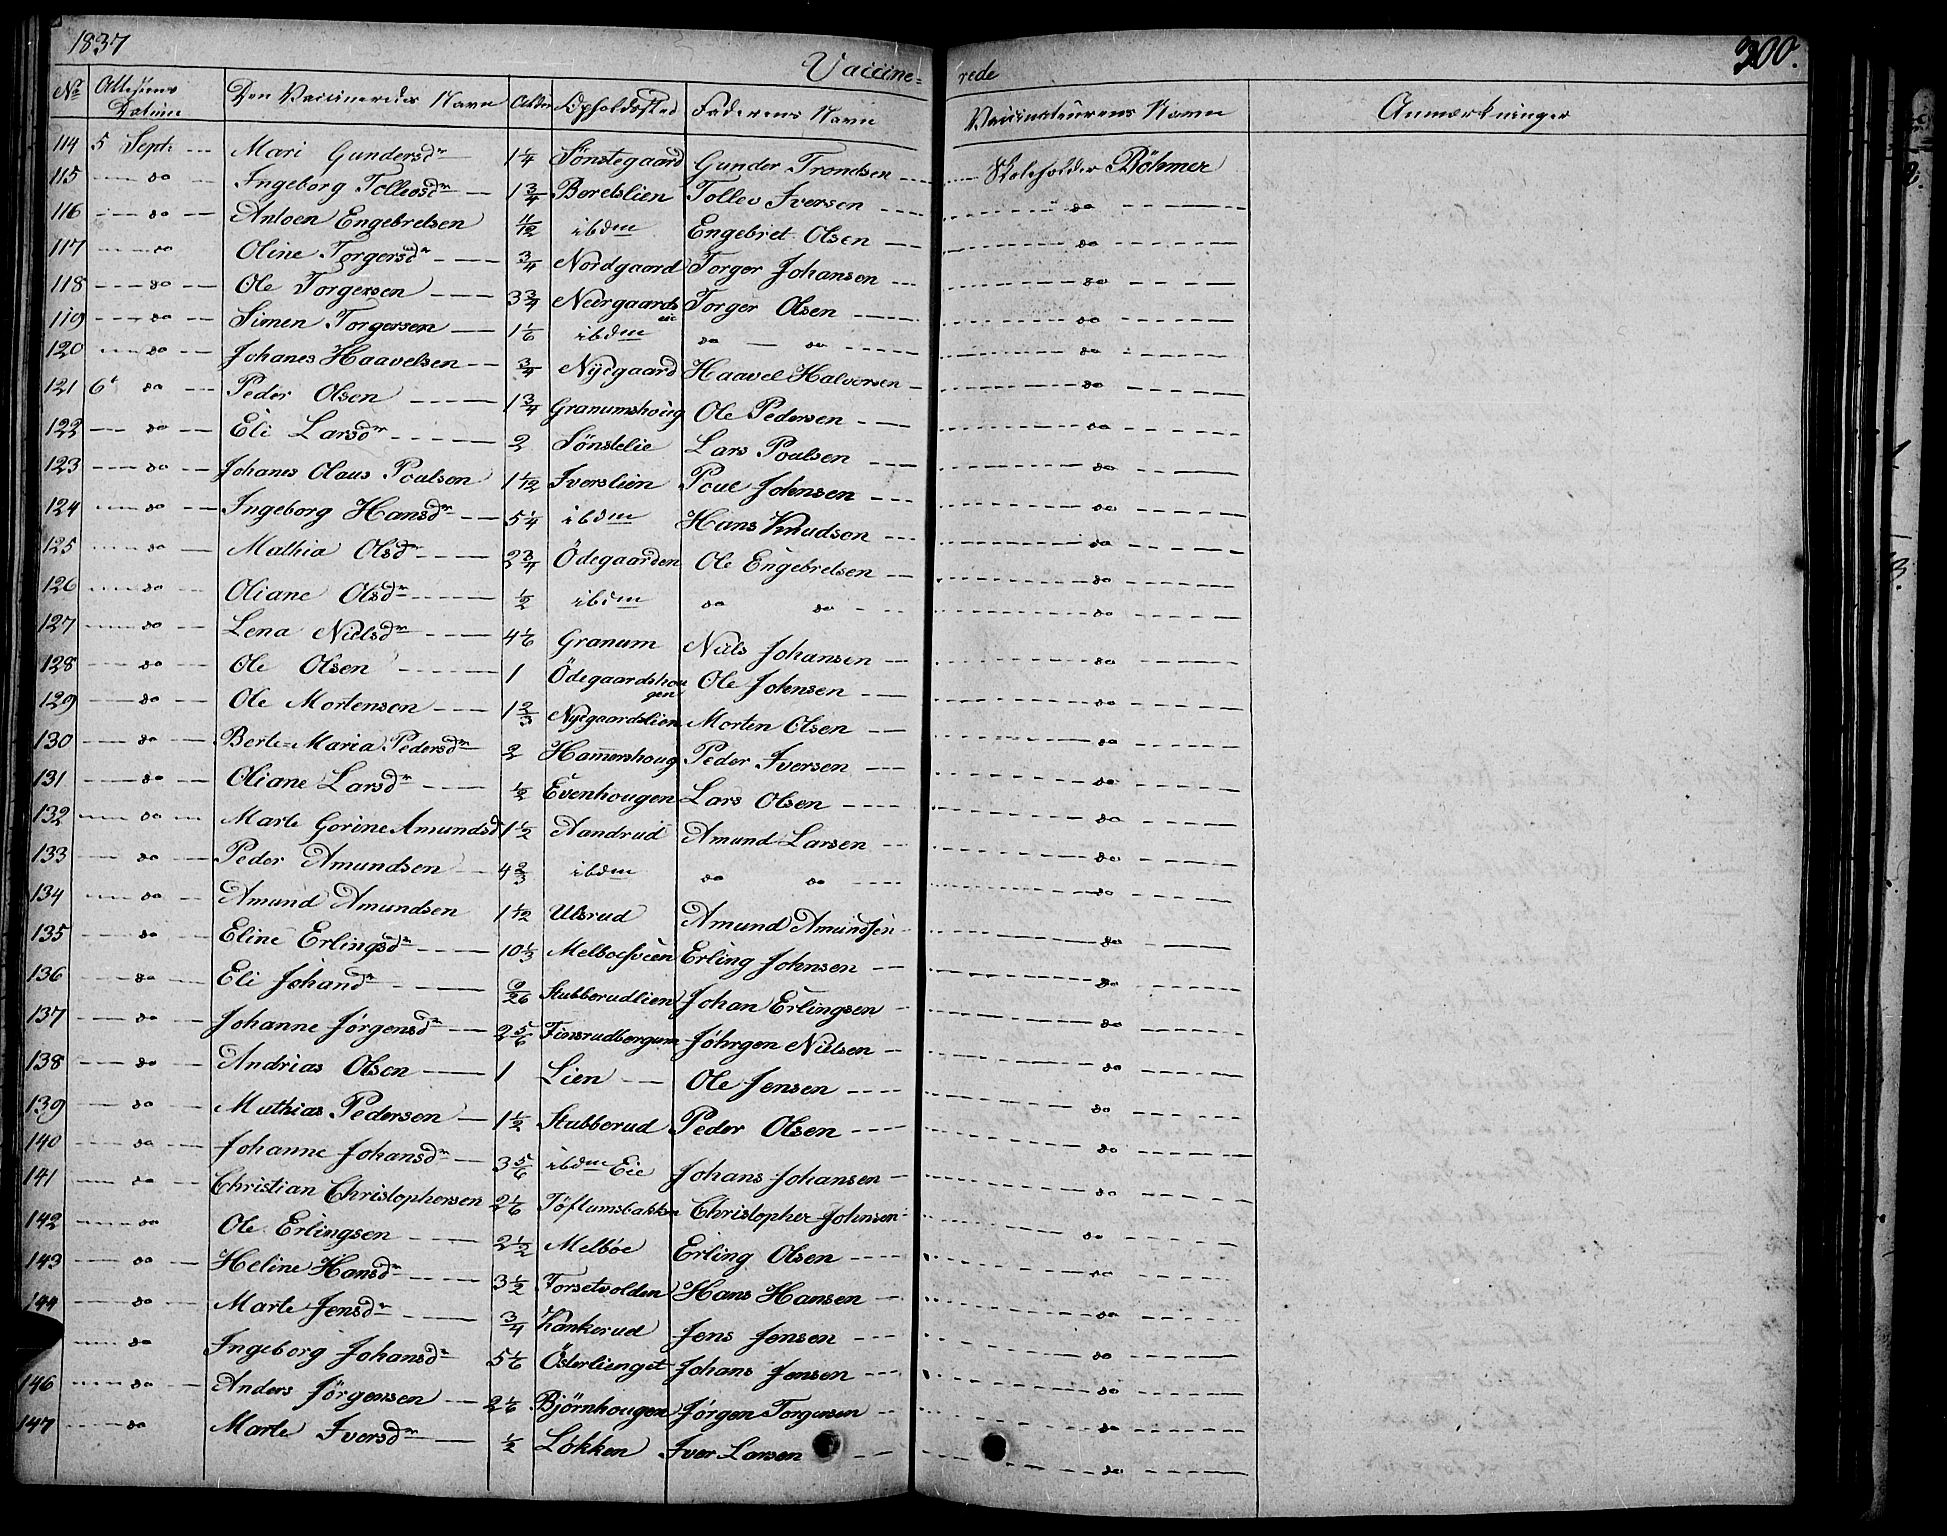 1837 Vaccine= rede 300.
No Attestens Datum Den Vaccineredes Navn Alder Opholdssted Faderens Navn Vaccinateurens Navn Anmærkninger
114 5 Sept. --- Mari Gundersdr 1 1/4 Sönstegaard Gunder Trondsen --- Skoleholder Böhmer
115 --- do --- Ingeborg Tollevsdr --- 1 3/4 Boretslien Tollev Iversen --- do ---
116 --- do --- Antoen Engebretsen 11/12 ibdm Engebret Olsen --- do ---
117 --- do Oline Torgersdr --- 3/4 Nordgaard Torger Johansen --- do ---
118 --- do --- Ole Torgersen --- 3 3/4 Neergaards eie Torger Olsen --- do ---
119 --- do --- Simen Torgersen --- 1 1/6 ibdm do --- do --- do ---
120 --- do --- Johanes Haavelsen --- 3/4 Nyegaard Haavel Halvorsen --- do ---
121 6t do --- Peder Olsen --- 1 3/4 Granumshoug Ole Pedersen --- do ---
122 --- do --- Eli Larsdr --- 2 Sönstelie Lars Poulsen --- do ---
123 --- do --- Johanes Olaus Poulsen 1 1/12 Iverslien Poul Johnsen --- do ---
124 --- do --- Ingeborg Hansdr --- 5 1/4 ibdm Hans Knudsen --- do ---
125 --- do --- Mathia Olsdr --- 2 3/4 Ödegaarden Ole Engebretsen --- do ---
126 --- do --- Oliane Olsdr --- 1/2 ibdm do do --- do ---
127 --- do --- Lena Nielsdr --- 4 1/6 Granum Niels Johansen --- do ---
128 --- do --- Ole Olsen --- 1 Ödegaardshougen Ole Johnsen --- do ---
129 --- do --- Ole Mortensen --- 1 2/3 Nyegaardslien Morten Olsen --- do ---
130 --- do --- Berte=Maria Pedersdr 2 Hamershoug Peder Iversen --- do ---
131 --- do --- Oliane Larsdr --- 1/2 Evenhougen Lars Olsen --- do ---
132 --- do --- Marte Gorine Amundsd 1 1/2 Aandrud Amund Larsen --- do ---
133 --- do --- Peder Amundsen --- 4 2/3 ibdm do do --- do ---
134 --- do --- Amund Amundsen 1 1/12 Ulsrud Amund Amundsen --- do ---
135 --- do --- Eline Erlingsdr --- 10 1/3 Erling Johnsen --- do ---
136 --- do --- Eli Johandr --- 9/26 Stubberudlien Johan Erlingsen --- do ---
137 --- do --- Johanne Jörgensdr --- 2 5/6 Finsrudbergum Jöhrgen Nielsen --- do ---
138 --- do --- Andrias Olsen --- 1 Lien --- Ole Jensen --- do ---
139 --- do --- Mathias Pedersen --- 1 1/2 Stubberud Peder Olsen --- do ---
140 --- do --- Johanne Johansdr --- 3 5/6 ibdm Eie Johans Johansen --- do ---
141 --- do --- Christian Christophersen 2 1/6 Töflumsbakken Christopher Johnsen --- do ---
142 --- do Ole Erlingsen --- 2 1/2 Melböe Erling Olsen --- do ---
143 --- do --- Heline Hansdr --- 3 1/2 Torsetvolden Hans Hansen --- do ---
144 --- do --- Marte Jensdr --- 3/4 Kankerud Jens Jensen --- do ---
--- do Ingeborg Johansdr 5 1/6 Österlienget Johans Jensen --- do ---
146 --- do --- Anders Jörgensen --- 2 1/6 Björnhougen Jörgen Torgersen --- do ---
147 --- do Marte Iversdr --- 1/2 Lökken Iver Larsen --- do ---